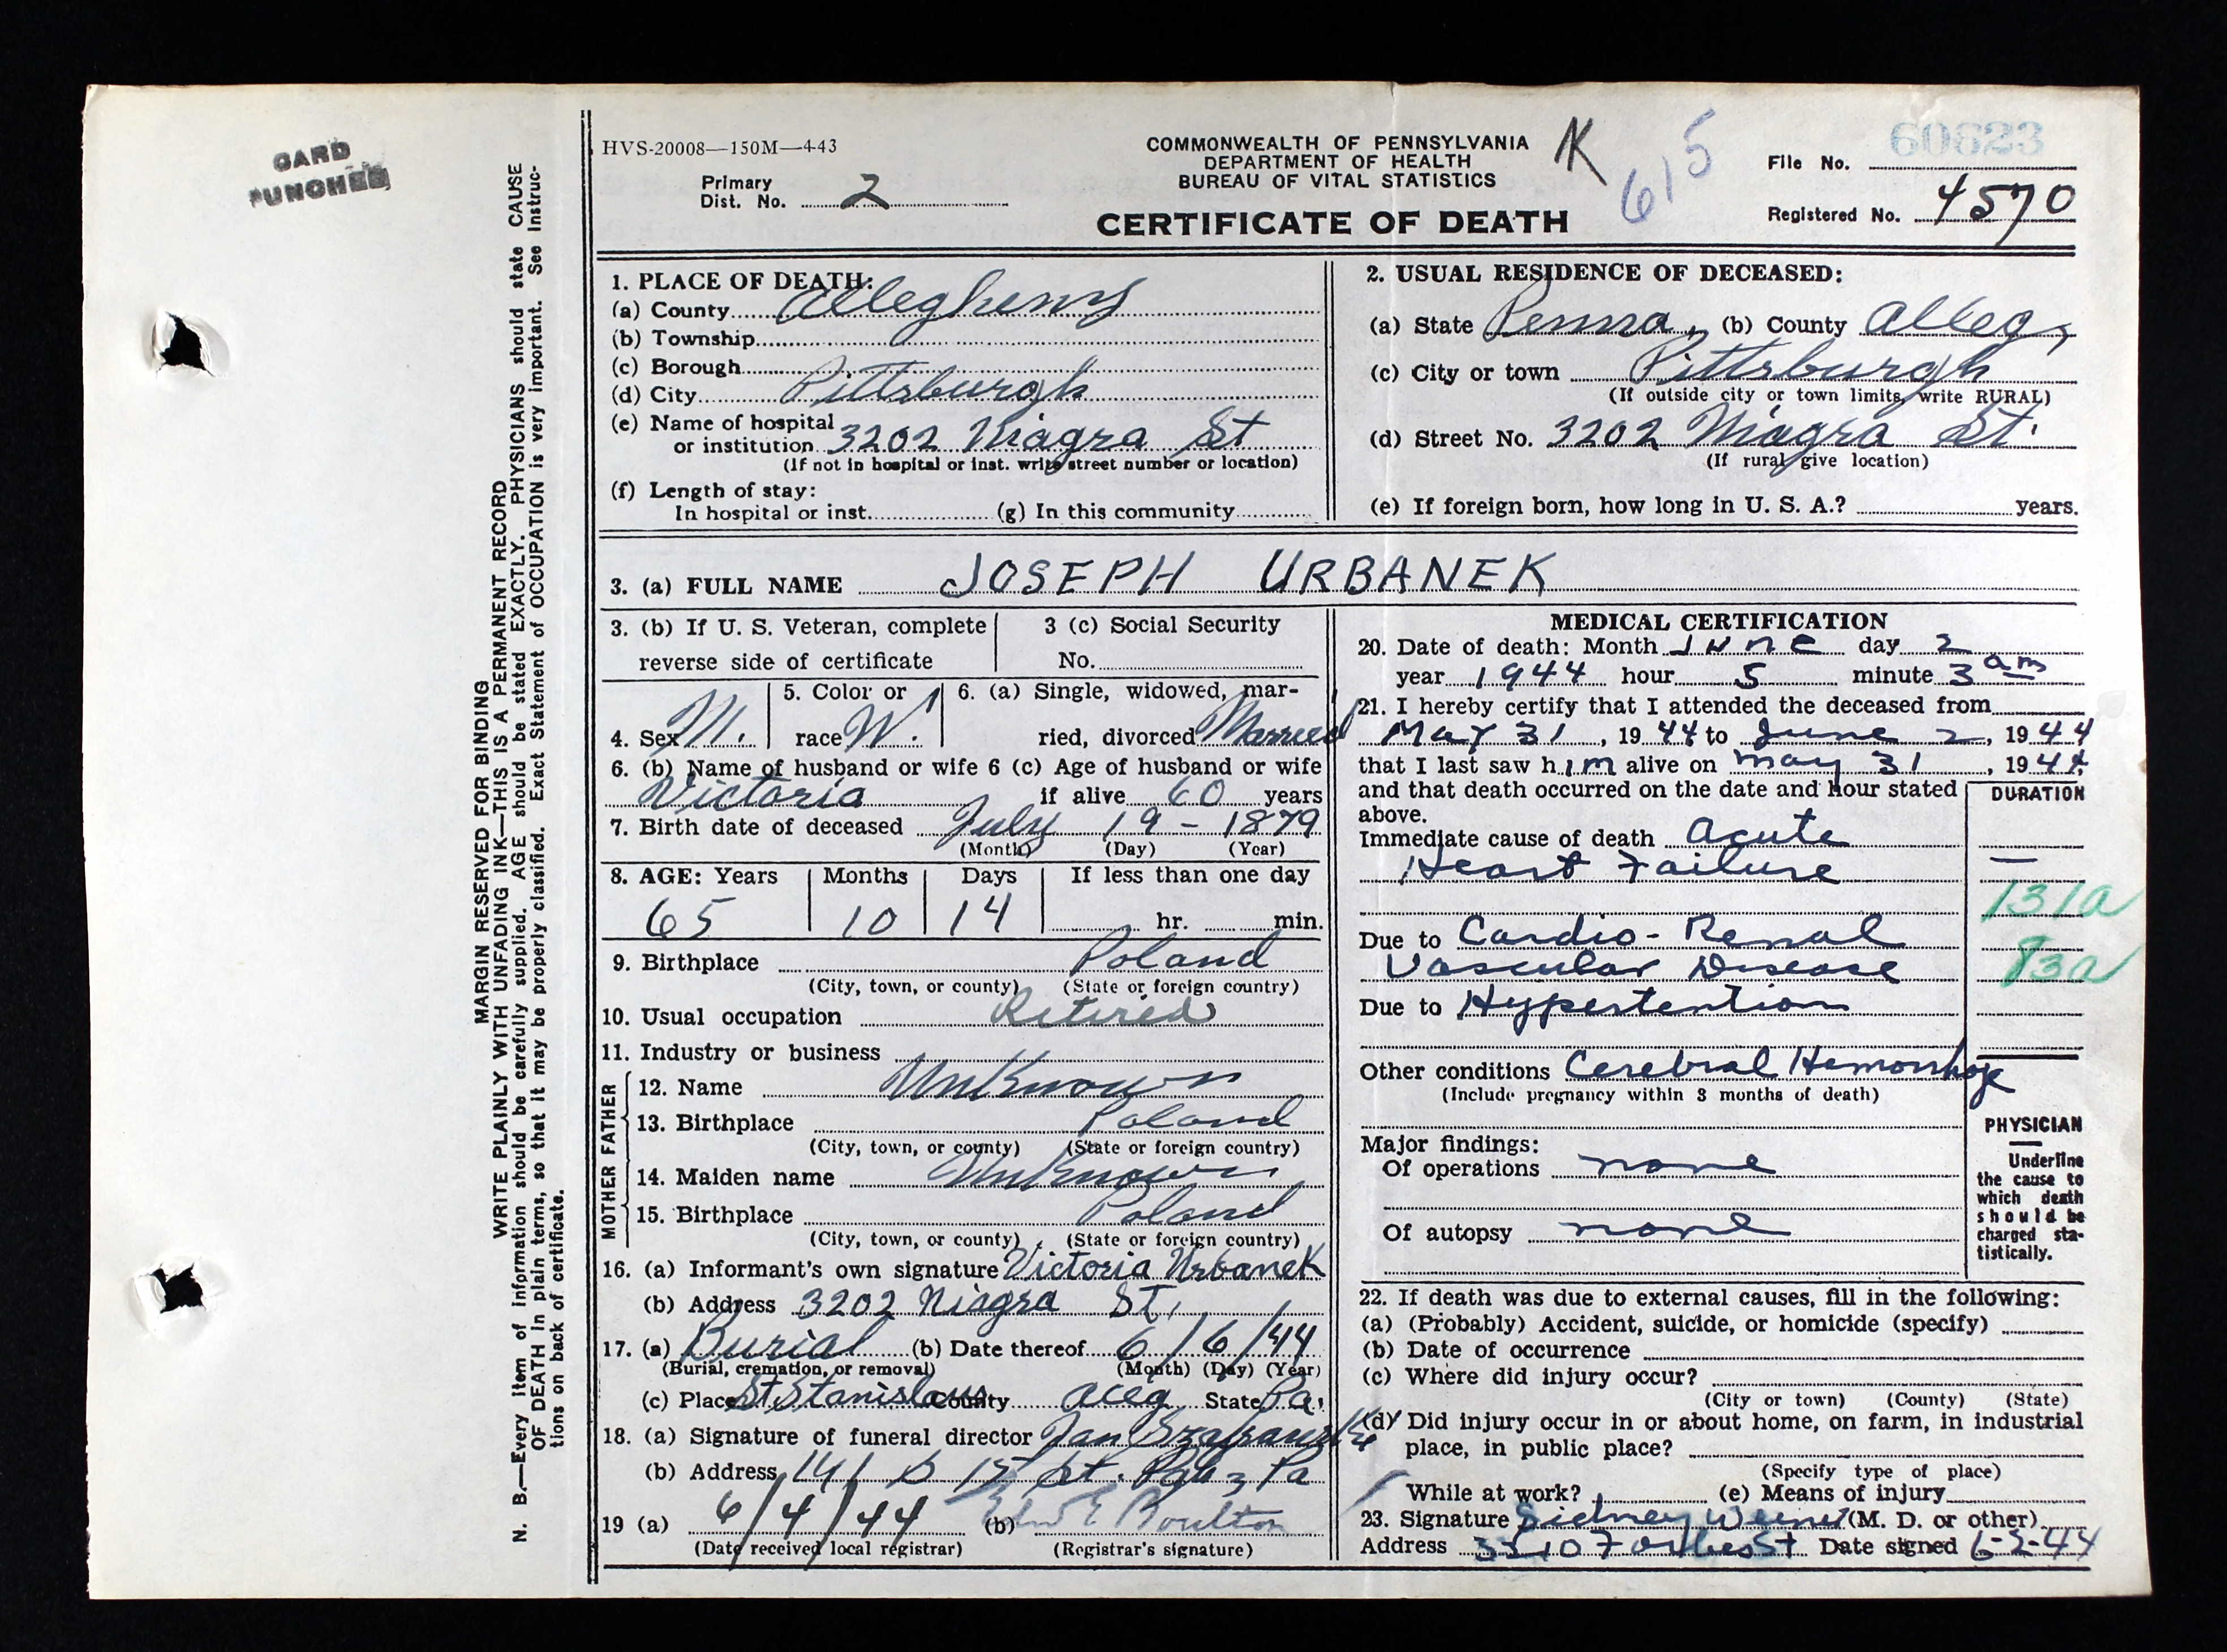 CARD
PUNCHED
MARGIN RESERVED FOR BINDING
WRITE PLAINLY WITH UNFADING INK—THIS IS A PERMANENT RECORD
N. B.—Every item of information should be carefully supplied. AGE should be stated EXACTLY. PHYSICIANS should state CAUSE
OF DEATH in plain terms, so that it may be properly classified. Exact Statement of OCCUPATION is very important. See Instruc-
tions on back of certificate.
HVS-20008—150M—443
Primary
Dist. No. 2
COMMONWEALTH OF PENNSYLVANIA
DEPARTMENT OF HEALTH
BUREAU OF VITAL STATISTICS
CERTIFICATE OF DEATH
K
615
File No. 60623
Registered No. 4570
1. PLACE OF DEATH:
(a) County Allegheny
(b) Township
(c) Borough
(d) City Pittsburgh
(e) Name of hospital
or institution 3202 Niagra St
(If not in hospital or inst. write street number or location)
(f) Length of stay:
In hospital or inst. (g) In this community
2. USUAL RESIDENCE OF DECEASED:
(a) State Penna, (b) County Alleg,
(c) City or town Pittsburgh
(If outside city or town limits, write RURAL)
(d) Street No. 3202 Niagra St.
(If rural give location)
(e) If foreign born, how long in U. S. A.? years.
3. (a) FULL NAME JOSEPH URBANEK
3. (b) If U. S. Veteran, complete
reverse side of certificate
3 (c) Social Security
No.
4. Sex M.
5. Color or
race W.
6. (a) Single, widowed, mar-
ried, divorced Married
6. (b) Name of husband or wife 6 (c) Age of husband or wife
Victoria if alive 60 years
7. Birth date of deceased July 19 - 1879
(Month) (Day) (Year)
8. AGE: Years Months Days If less than one day
65 10 14 hr. min.
9. Birthplace Poland
(City, town, or county) (State or foreign country)
10. Usual occupation Retired
11. Industry or business
FATHER
12. Name UnKnown
13. Birthplace Poland
(City, town, or county) (State or foreign country)
MOTHER
14. Maiden name UnKnown
15. Birthplace Poland
(City, town, or county) (State or foreign country)
16. (a) Informant's own signature Victoria Urbanek
(b) Address 3202 Niagra St.
17. (a) Burial (b) Date thereof 6/6/44
(Burial, cremation, or removal) (Month) (Day) (Year)
(c) Place St Stanislaus County Alleg State Pa.
18. (a) Signature of funeral director Jan
(b) Address 141 S 15 St. Pgh 3 Pa
19 (a) 6/4/44 (b) Edw E Boulton
(Date received local registrar) (Registrar's signature)
MEDICAL CERTIFICATION
20. Date of death: Month June day 2
year 1944 hour 5 minute 3 am
21. I hereby certify that I attended the deceased from
May 31, 1944 to June 2, 1944
that I last saw him alive on May 31, 1944
and that death occurred on the date and hour stated
above.
DURATION
Immediate cause of death Acute
Heart Failure —
131a
Due to Cardio-Renal
Vascular Disease 83a
Due to Hypertention
Other conditions Cerebral Hemorrhage
(Include pregnancy within 3 months of death)
Major findings:
Of operations none
Of autopsy none
PHYSICIAN
Underline
the cause to
which death
should be
charged sta-
tistically.
22. If death was due to external causes, fill in the following:
(a) (Probably) Accident, suicide, or homicide (specify)
(b) Date of occurrence
(c) Where did injury occur?
(City or town) (County) (State)
(d) Did injury occur in or about home, on farm, in industrial
place, in public place?
(Specify type of place)
While at work? (e) Means of injury
23. Signature Sidney (M. D. or other)
Address Forbes St Date signed 6-2-44